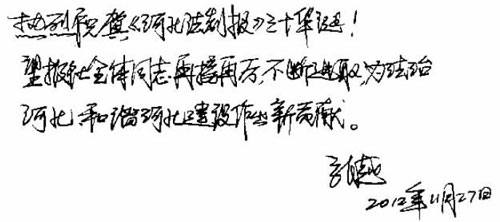 热烈祝贺《河北法制报》三十华诞！
望报社全体同志再接再厉，不断进取，为法治
河北、和谐河北建设作出新贡献。
张越
2012年11月27日